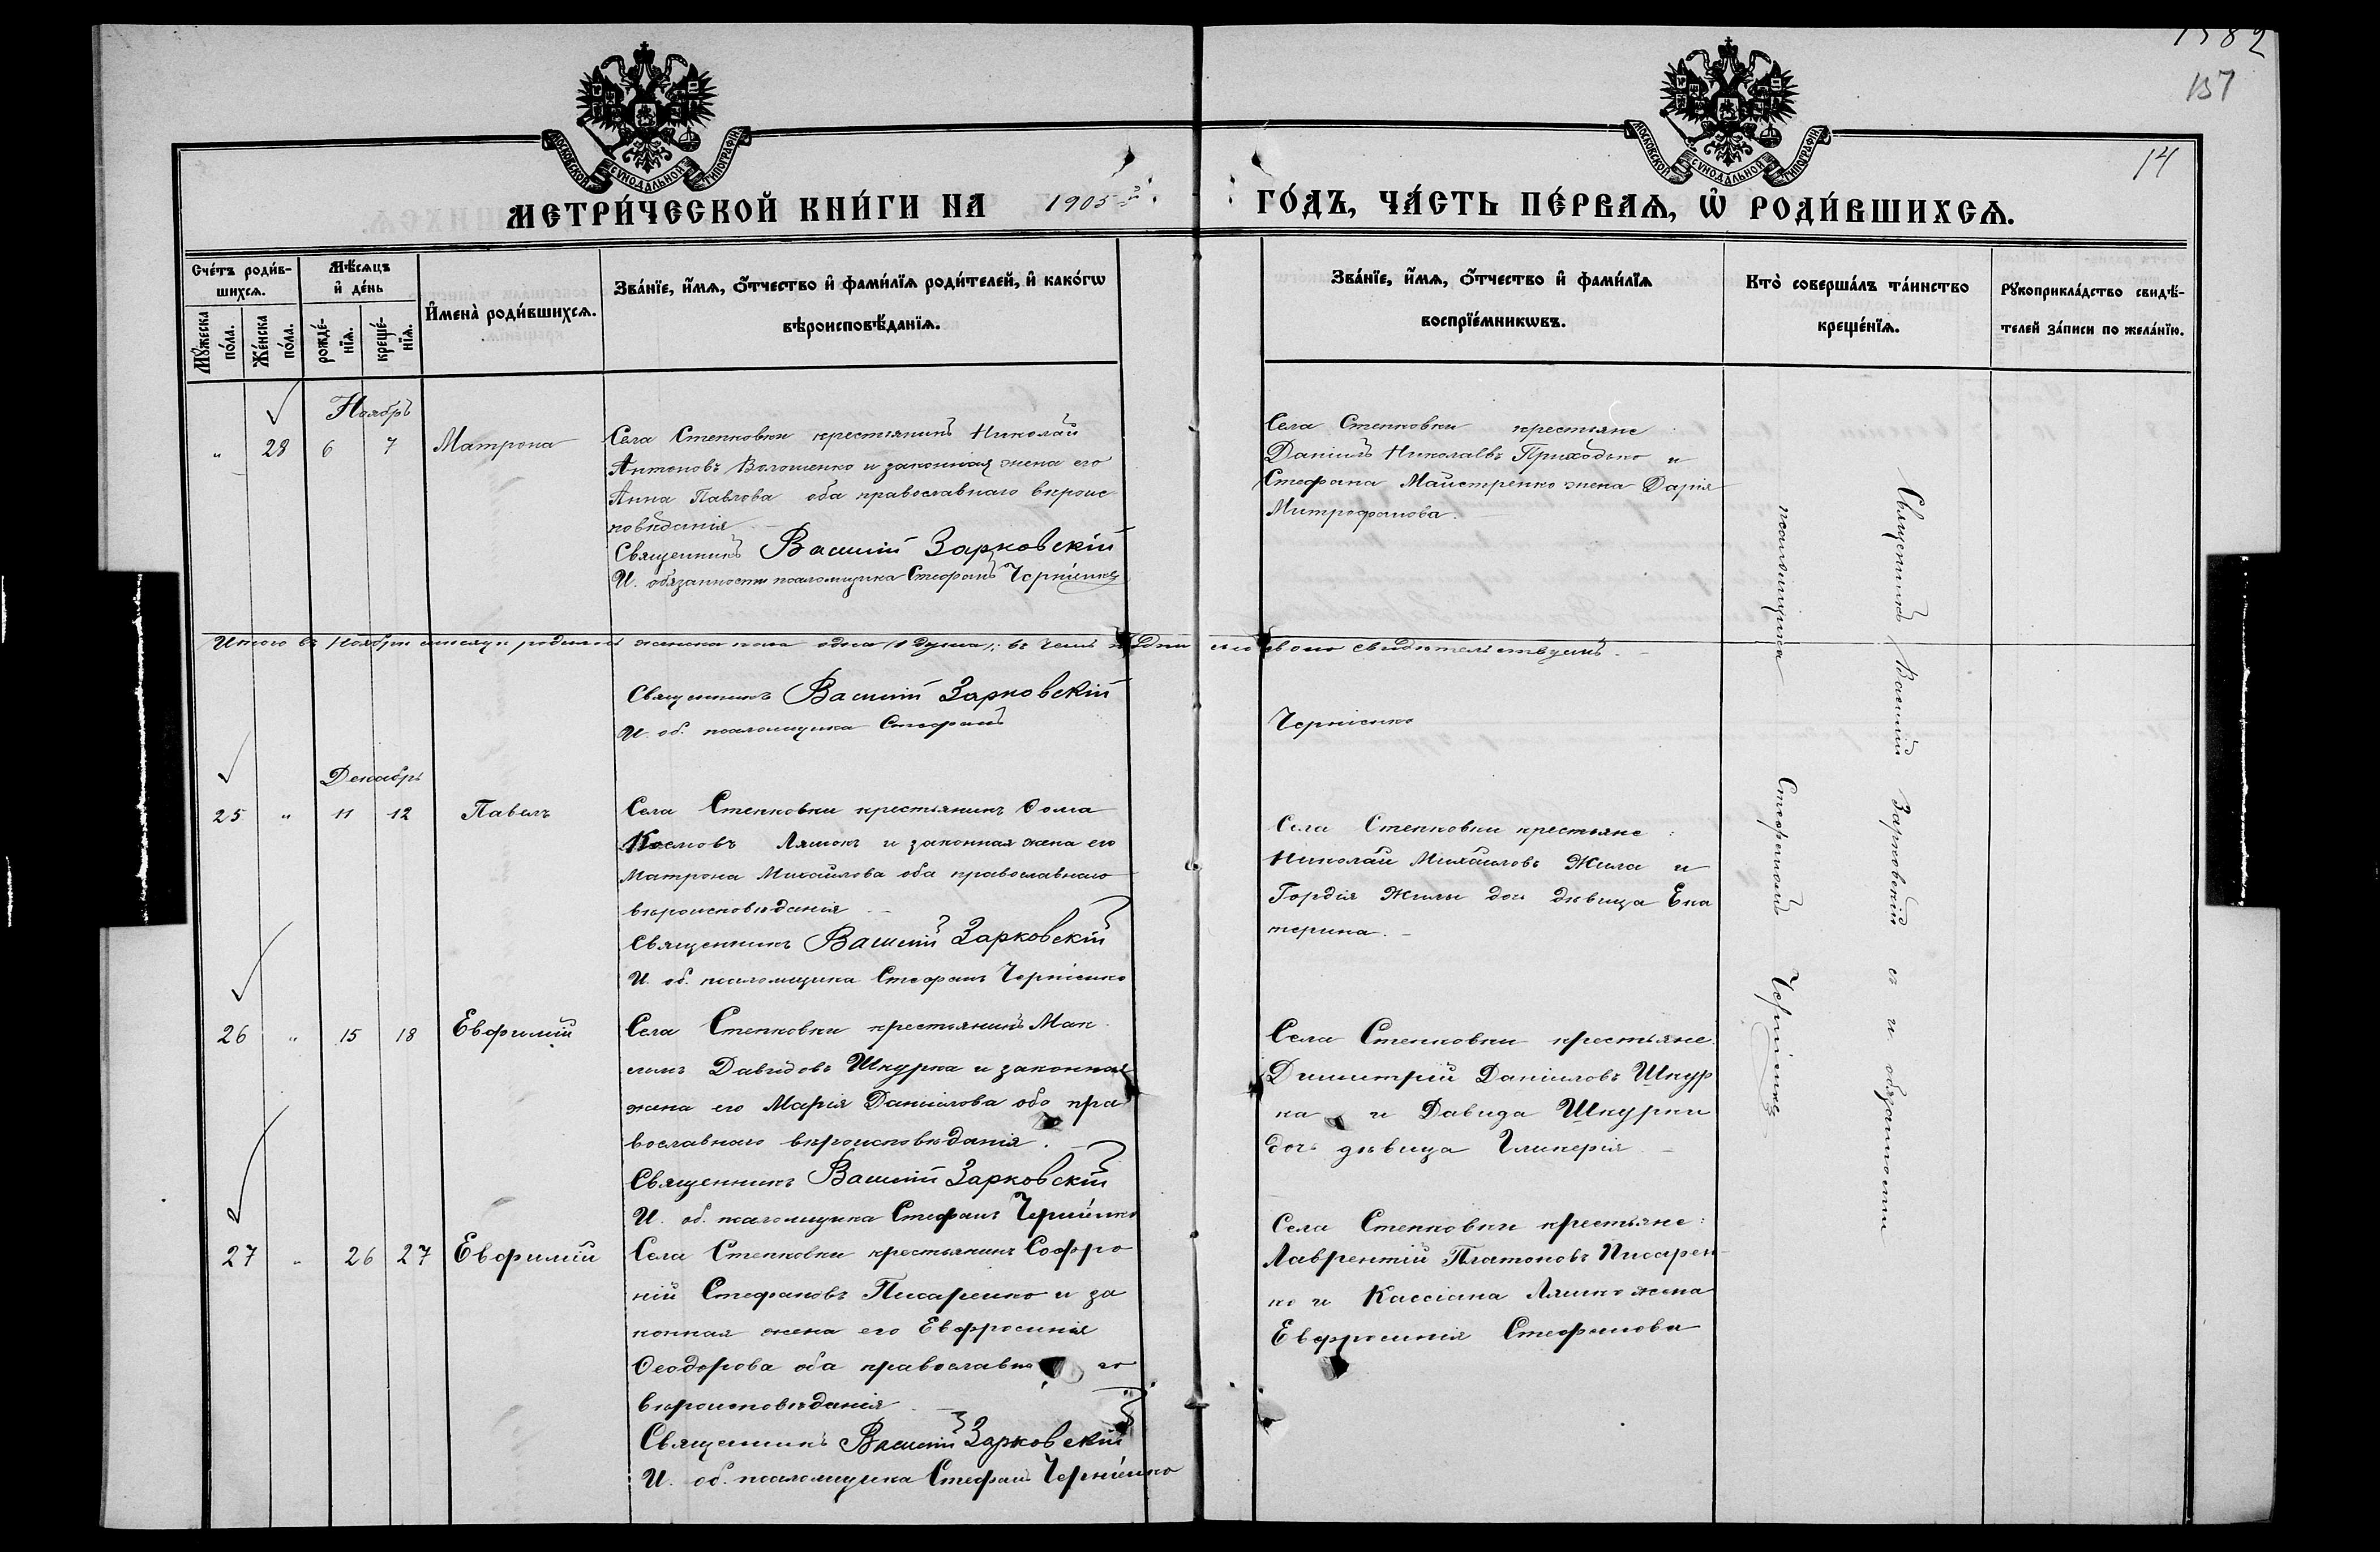 1382
157
14
МОСКОВСКОЙ СѴНОДАЛЬНОЙ ТИПОГРАФІИ
МОСКОВСКОЙ СѴНОДАЛЬНОЙ ТИПОГРАФІИ
МЕТРИ́ЧЕСКОЙ КНИ́ГИ НА 1905 ГО́ДЪ, ЧА́СТЬ ПЕ́РВАѦ, Ѡ҆ РОДИ́ВШИХСѦ.
Сче́тъ роди́в-
шихсѧ.
Мꙋ́жеска по́ла.
Же́нска по́ла.
Мѣ́сѧцъ
и҆ де́нь
рожде́-
нїѧ.
креще́-
нїѧ.
И҆мена̀ роди́вшихсѧ.
Зва́нїе, и҆́мѧ, ѻ҆́тчество и҆ фами́лїѧ роди́телей, и҆ како́гѡ
вѣроисповѣ́данїѧ.
Зва́нїе, и҆́мѧ, ѻ҆́тчество и҆ фами́лїѧ
воспрїе́мникѡвъ.
Кто̀ соверша́лъ та́инство
креще́нїѧ.
Рꙋкоприкла́дство свидѣ́-
телей за́писи по жела́нїю.
Ноябрь
" 28 6 7 Матрона
Села Степковки крестьянинъ Николай
Антоновъ Волошенко и законная жена его
Анна Павлова оба православнаго вѣроис
повѣданія
Священникъ Василій Зарковскій
И. обязанности псаломщика Стефанъ Черніенко
Села Степковки крестьяне
Даніилъ Николаевъ Приходько и
Стефана Майстренко жена Дарія
Митрофанова.
Итого въ Ноябрѣ мѣсяцѣ родилось женска пола одна (1 душа); въ чемъ и свидѣтельствуемъ.
Священникъ Василій Зарковскій
И. об. псаломщика Стефанъ Черніенко
Декабрь
25 " 11 12 Павелъ
Села Степковки крестьянинъ Ѳома
Космовъ Ляшокъ и законная жена его
Матрона Михайлова оба православнаго
вѣроисповѣданія
Священникъ Василій Зарковскій
И. об. псаломщика Стефанъ Черніенко
Села Степковки крестьяне:
Николай Михайловъ Жила и
Гордія Жилы дочь дѣвица Ека
терина.
26 " 15 18 Евфимій
Села Степковки крестьянинъ Мак
симъ Давидовъ Шкурка и законная
жена его Марія Даніилова оба пра
вославнаго вѣроисповѣданія.
Священникъ Василій Зарковскій
И. об. псаломщика Стефанъ Черніенко
Села Степковки крестьяне
Димитрій Данииловъ Шкур
ка и Давида Шкурки
дочь дѣвица Гликерія
27 " 26 27 Евфимій
Села Степковки крестьянинъ Софро
ній Стефановъ Писаренко и за
конная жена его Евфросинія
Ѳеодорова оба православна го
вѣроисповѣданія
Священникъ Василій Зарковскій
И. об. псаломщика Стефанъ Черніенко
Села Степковки крестьяне:
Лаврентій Платоновъ Писарен
ко и Кассіана Ляшко жена
Евфросинія Стефанова
Священникъ Василій Зарковскій съ и. обязанности
псаломщика Стефаномъ Черніенко